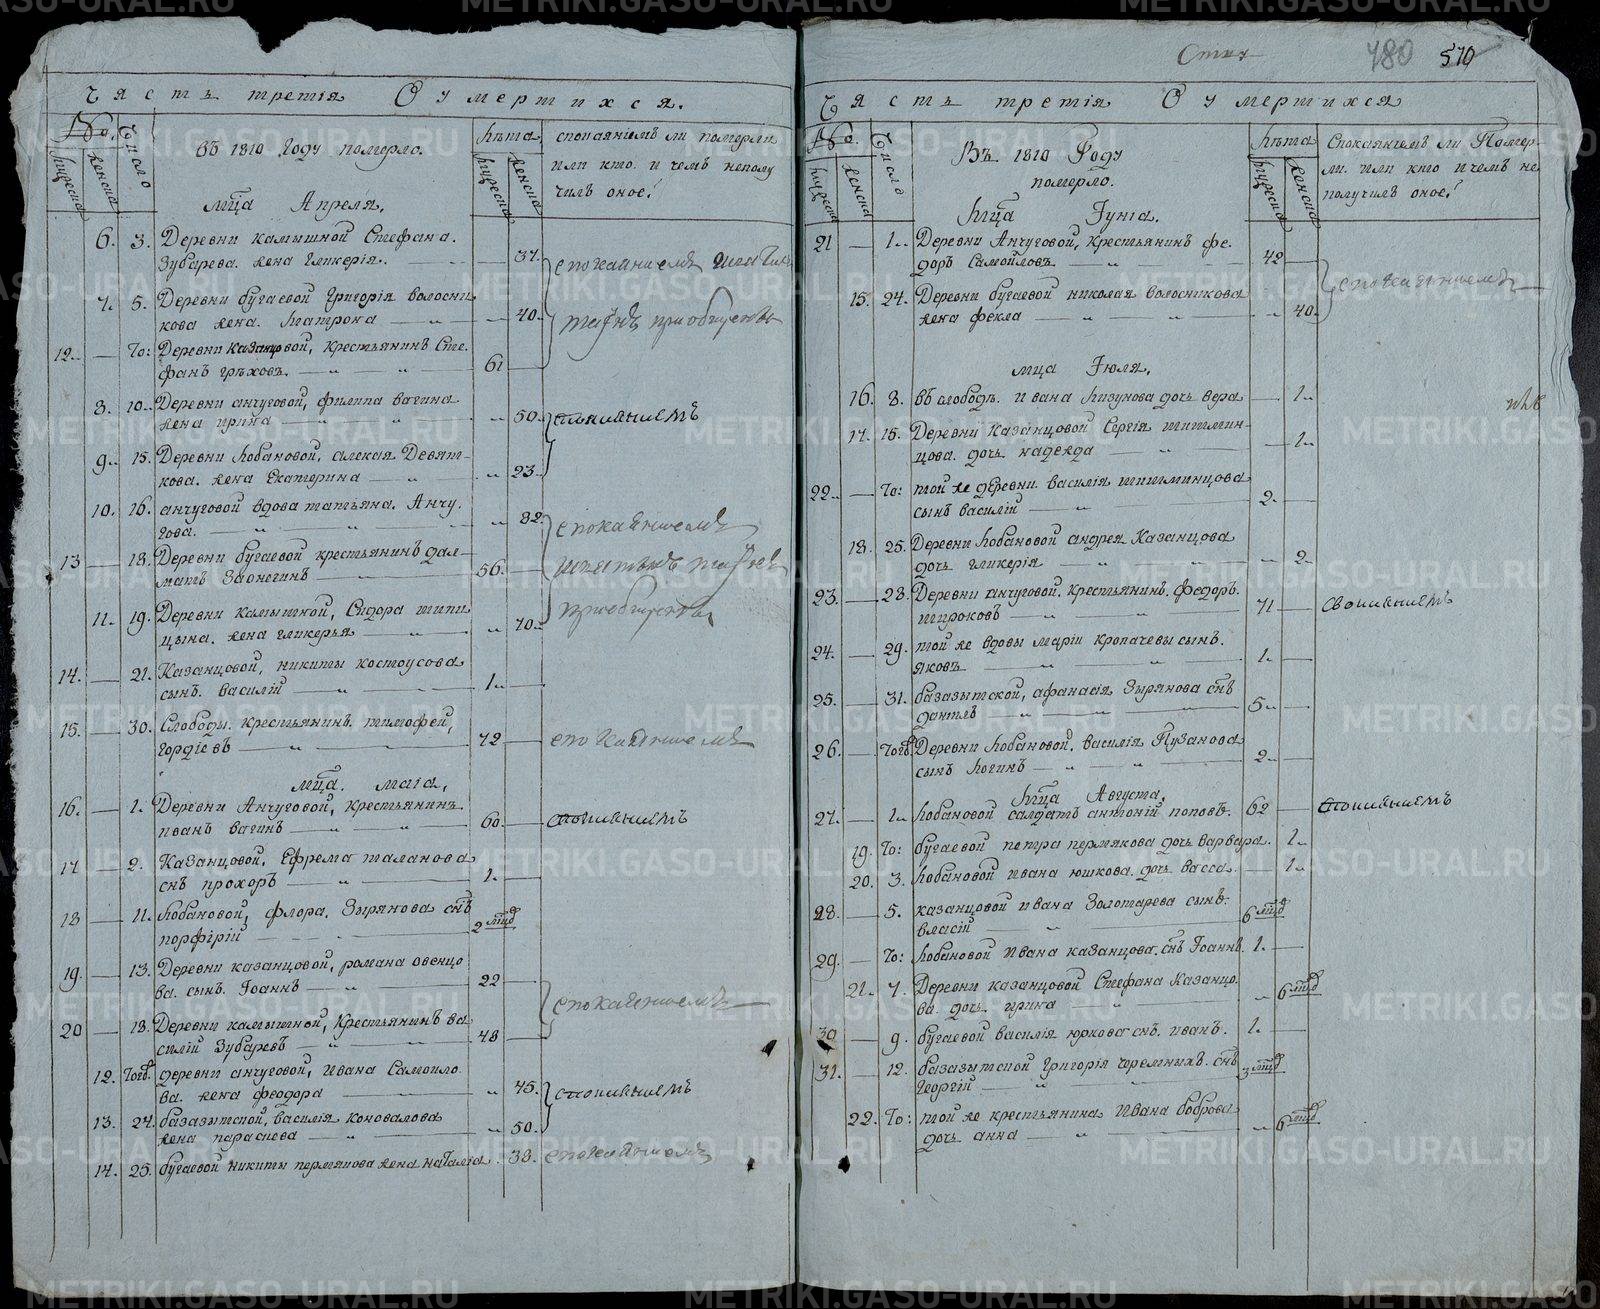 Часть третія О умершихся.
№.
мужеска
женска
Число
Въ 1810 Году померло.
Лѣта
мужеска
женска
спокаяніемъ ли померли
или кто и чемъ неполу
чилъ оное?
мца Апреля.
6. 3. Деревни камышной Стефана.
Зубарева. жена гликерія. 37.
спокаяниемъ
7. 5. Деревни бугаевой Григорія волосни
кова жена. Матрона 40.
12. То: Деревни казанцовой, крестьянинъ Сте
фанъ грѣховъ. 61
8. 10. Деревни анчуговой, филипа вагина
жена ирина 50.
9. 15. Деревни Лобановой, алекся Девят-
кова. жена Екатерина 23.
10. 16. анчуговой вдова татьяна. Анчу
гова. 82.
спокаяниемъ
13 18. Деревни бугаевой крестьянинъ дал-
матъ Заонегинъ 56.
11. 19. Деревни камышной, Сидора шипи
цына. жена гликерья 70.
14. 21. Казанцовой, никиты костоусова
сынъ. василій 1.
15. 30. Слободы. крестьянинъ. тимофей,
гордіевъ 72
спокаяниемъ
мца. маіа.
16. 1. Деревни Анчуговой, крестьянинъ
иванъ вагинъ 60.
17 2. Казанцовой, Ефрема таланова
снъ прохоръ 1.
18 11. Лобановой, флора. Зырянова снъ
порфірій 2 мцд
19. 13. Деревни казанцовой, романа овенцо
ва. сынъ. Іоаннъ 22
спокаяниемъ
20 18. Деревни камышной, Крестьянинъ ва
силій Зубаревъ 48
12. Тогд. деревни анчуговой, ивана Самоило
ва. жена феодора 45.
13. 24. базазытской, василія коновалова
жена параскева 50.
14. 25. бугаевой никиты пермякова жена наталіа. 38.
спокаяниемъ
480 570
Часть третія О умершихся
№.
мужеска
женска
Число
Въ 1810 Году
померло.
Лѣта
мужеска
женска
Спокаяніемъ ли Помер-
ли. или кто и чемъ не
получилъ оное?
Мца Іуніа.
21 1. Деревни Анчуговой, крестьянинъ фе-
доръ Самойловъ 42
спокаяниемъ
15. 24. Деревни бугаевой николая волосникова
жена фекла 40.
мца Іюля.
16. 8. въ слободѣ. ивана Лизунова дочь вера 1.
17. 15. Деревни Казанцовой Сергія
цова. дочь надежда 1.
22. То: той же деревни. василія
сынъ василій 2.
18. 25. Деревни Лобановой андрея Казанцова
дочь гликерія 2.
23. 28. Деревни анчуговой. крестьянинъ. федоръ.
широковъ 71
24. 29. той же вдовы маріи кропачевы сынъ.
яковъ. 1.
25. 31. базазытской, афанасія Зырянова снъ
даніилъ 5.
26. Тогд. Деревни Лобановой. василія Пузанова
сынъ логинъ 2.
Мца Августа.
27. 1. Лобановой салдатъ антоній поповъ. 62
19. То: бугаевой петра пермякова дочь варвара. 1.
20. 3. Лобановой ивана юшкова дочь васса. 1.
28. 5. казанцовой ивана Золотарева сынъ.
власій 6 мцд
29. То: Лобановой ивана казанцова. снъ Іоаннъ. 1.
21. 7. Деревни казанцовой Стефана Казанцо
ва. дочь. ирина 6 мцд
30 9. бугаевой василія юркова снъ. иванъ. 1.
31. 12. базазытской григорія черемныхъ. снъ
георгій 3 мцд
22. То: той же крестьянина ивана боброва
дочь анна 6 мцд
METRIKI.GASO-URAL.RU